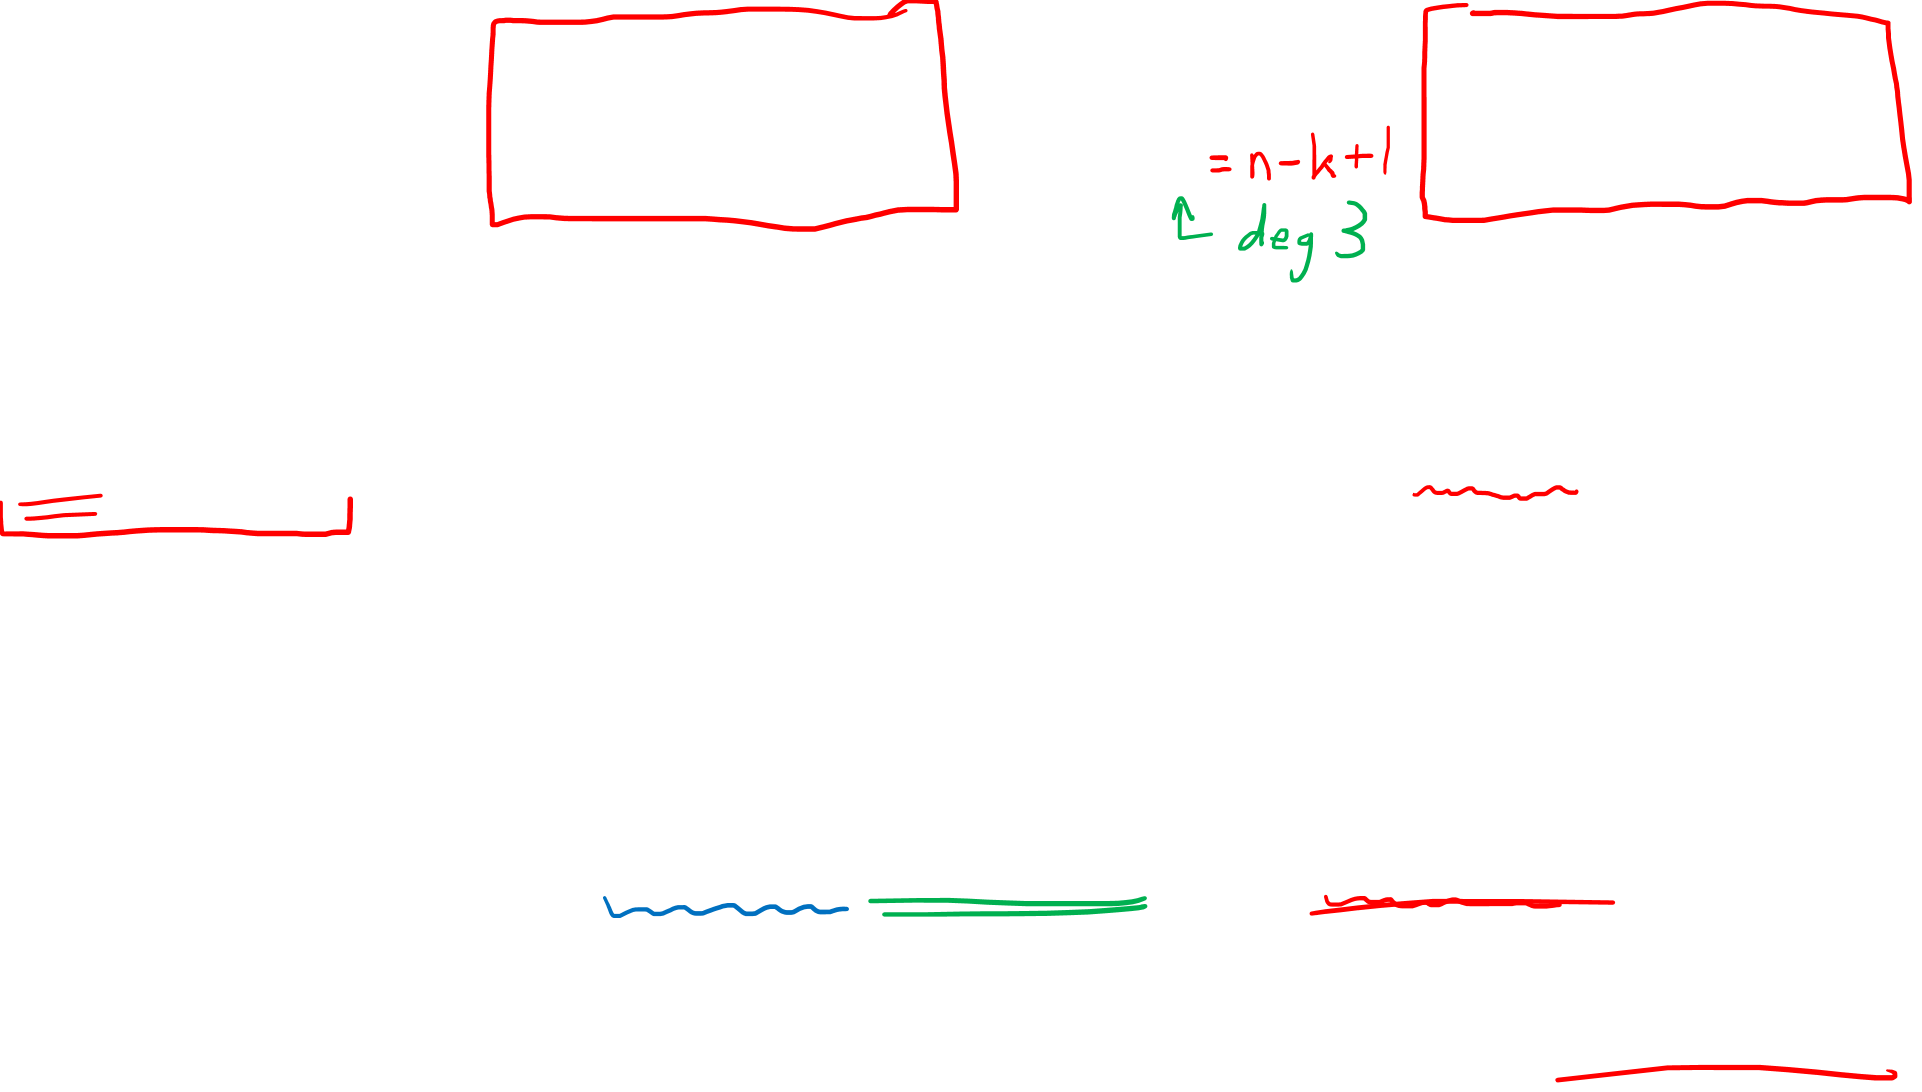 = n-k+1
deg 3